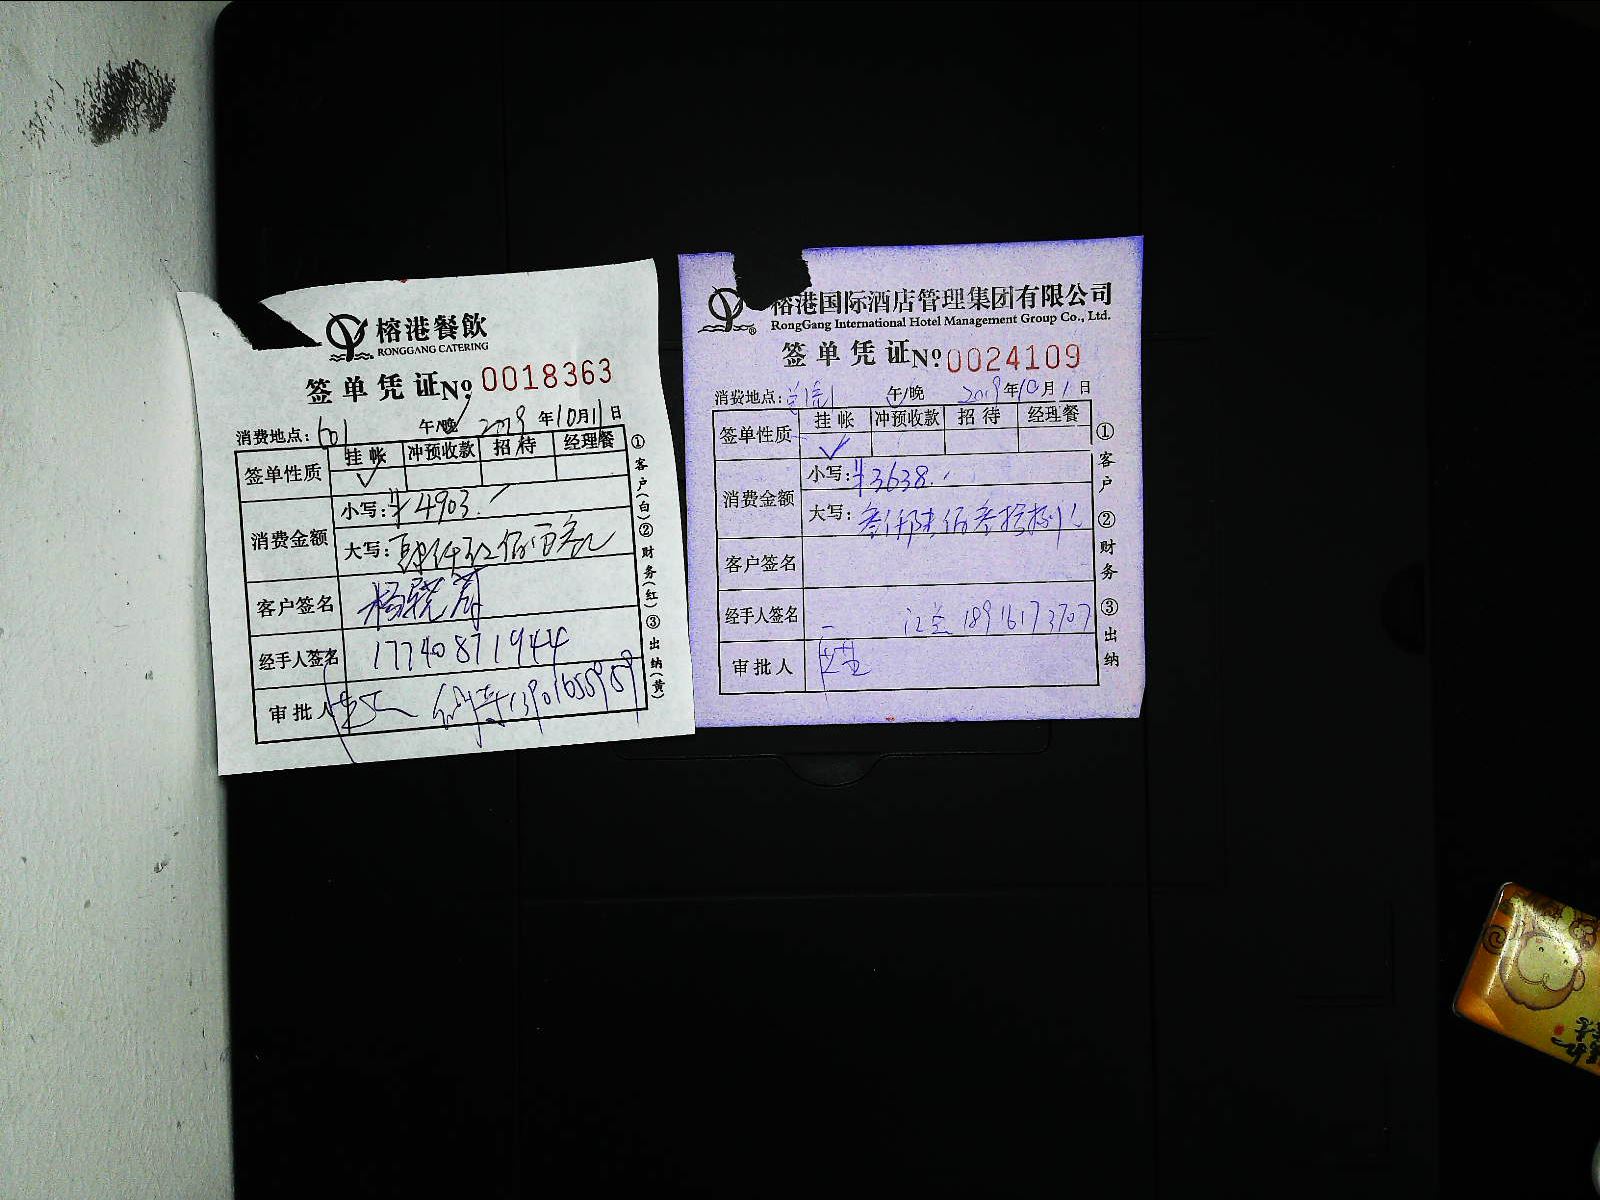 榕港餐飲
RONGGANG CATERING
签单凭证 No 0018363
消费地点: 601 午/晚 2019年10月11日
签单性质 挂帐 冲预收款 招待 经理餐
✓
消费金额 小写: ¥4903.-
大写:
客户签名
经手人签名 17740871944
审批人
①客户(白)②财务(红)③出纳(黄)
榕港国际酒店管理集团有限公司
RongGang International Hotel Management Group Co., Ltd.
签单凭证 No 0024109
消费地点: 午/晚 2019年10月1日
签单性质 挂帐 冲预收款 招待 经理餐
✓
消费金额 小写: ¥3638.-
大写: 叁仟陆佰叁拾捌
客户签名
经手人签名 18916173707
审批人
①客户 ②财务 ③出纳